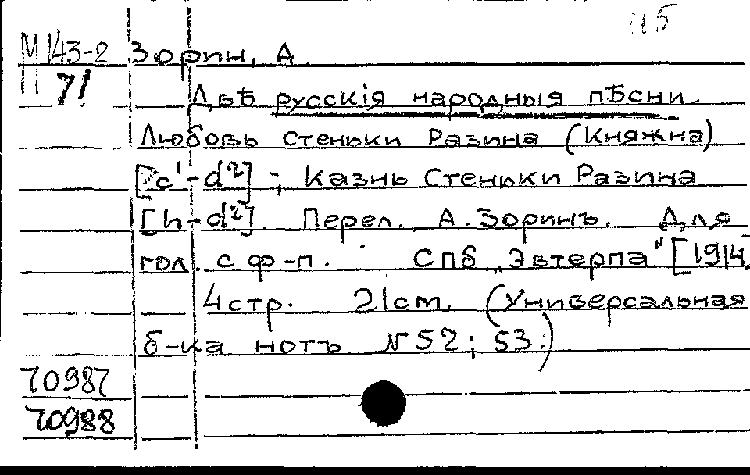 н5
М 143-2 Зорин, А
П 71
Двѣ русскiя народныя пѣсни.
Любовь Стеньки Разина (Княжна)
[c¹-d²]; Казнь Стеньки Разина
[h-d²]. Перел. А. Зоринъ. Для
гол. с ф-п. СПб „Эвтерпа" [1914
4 стр. 21 см. (Универсальная
б-ка нотъ N 52; 53.)
70987
70988